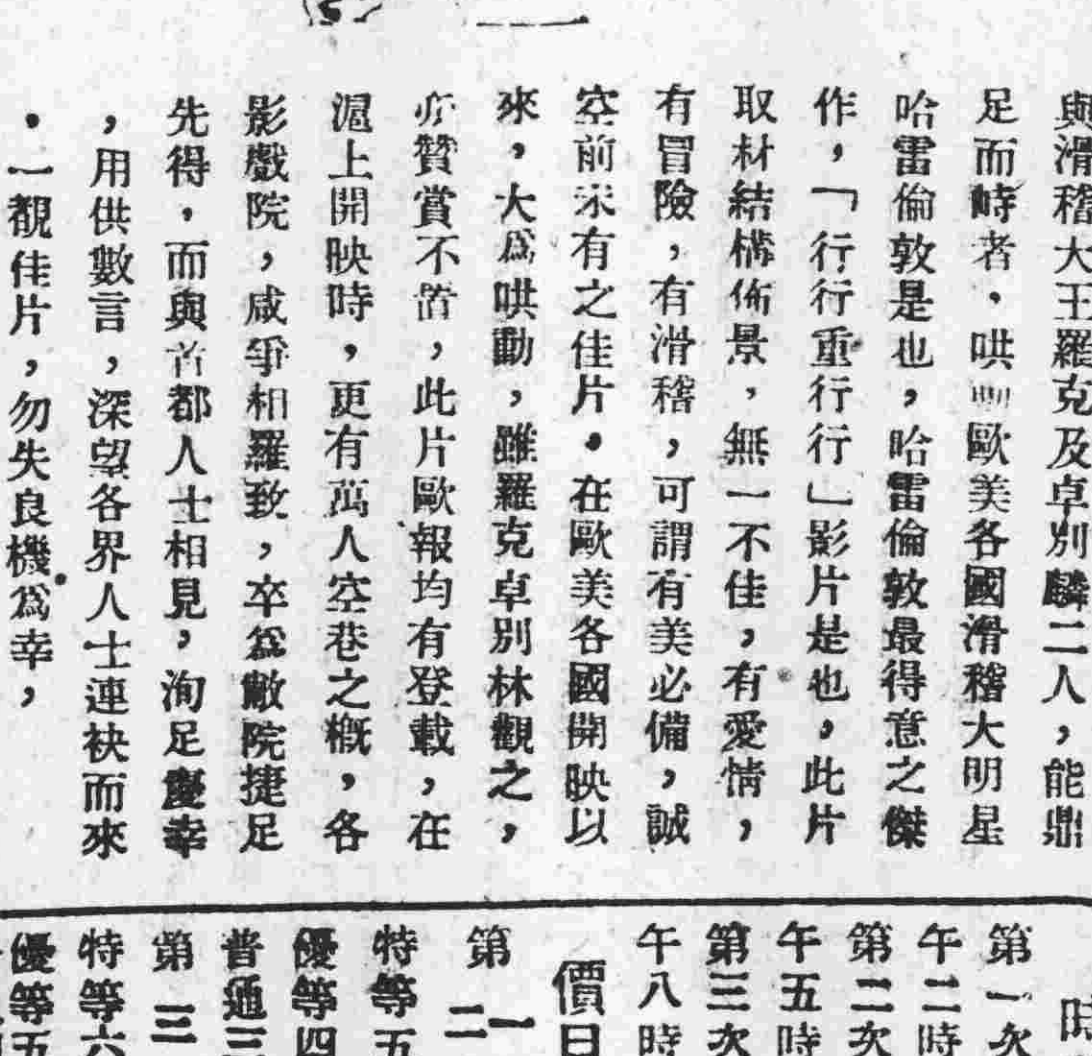 與滑稽大王羅克及卓別麟二人，能鼎
足而峙者，哄動歐美各國滑稽大明星
哈雷倫敦是也，哈雷倫敦最得意之傑
作，「行行重行行」影片是也，此片
取材結構佈景，無一不佳，有愛情，
有冒險，有滑稽，可謂有美必備，誠
空前未有之佳片。在歐美各國開映以
來，大爲哄動，雖羅克卓別林觀之，
亦贊賞不置，此片歐報均有登載，在
滬上開映時，更有萬人空巷之概，各
影戲院，咸爭相羅致，卒爲敝院捷足
先得，而與首都人士相見，洵足慶幸
，用供數言，深望各界人士連袂而來
。一觀佳片，勿失良機爲幸，
時
第一次
午二時
第二次
午五時
第三次
午八時
價目
第一二
特等五
優等四
普通三
第三
特等六
優等五